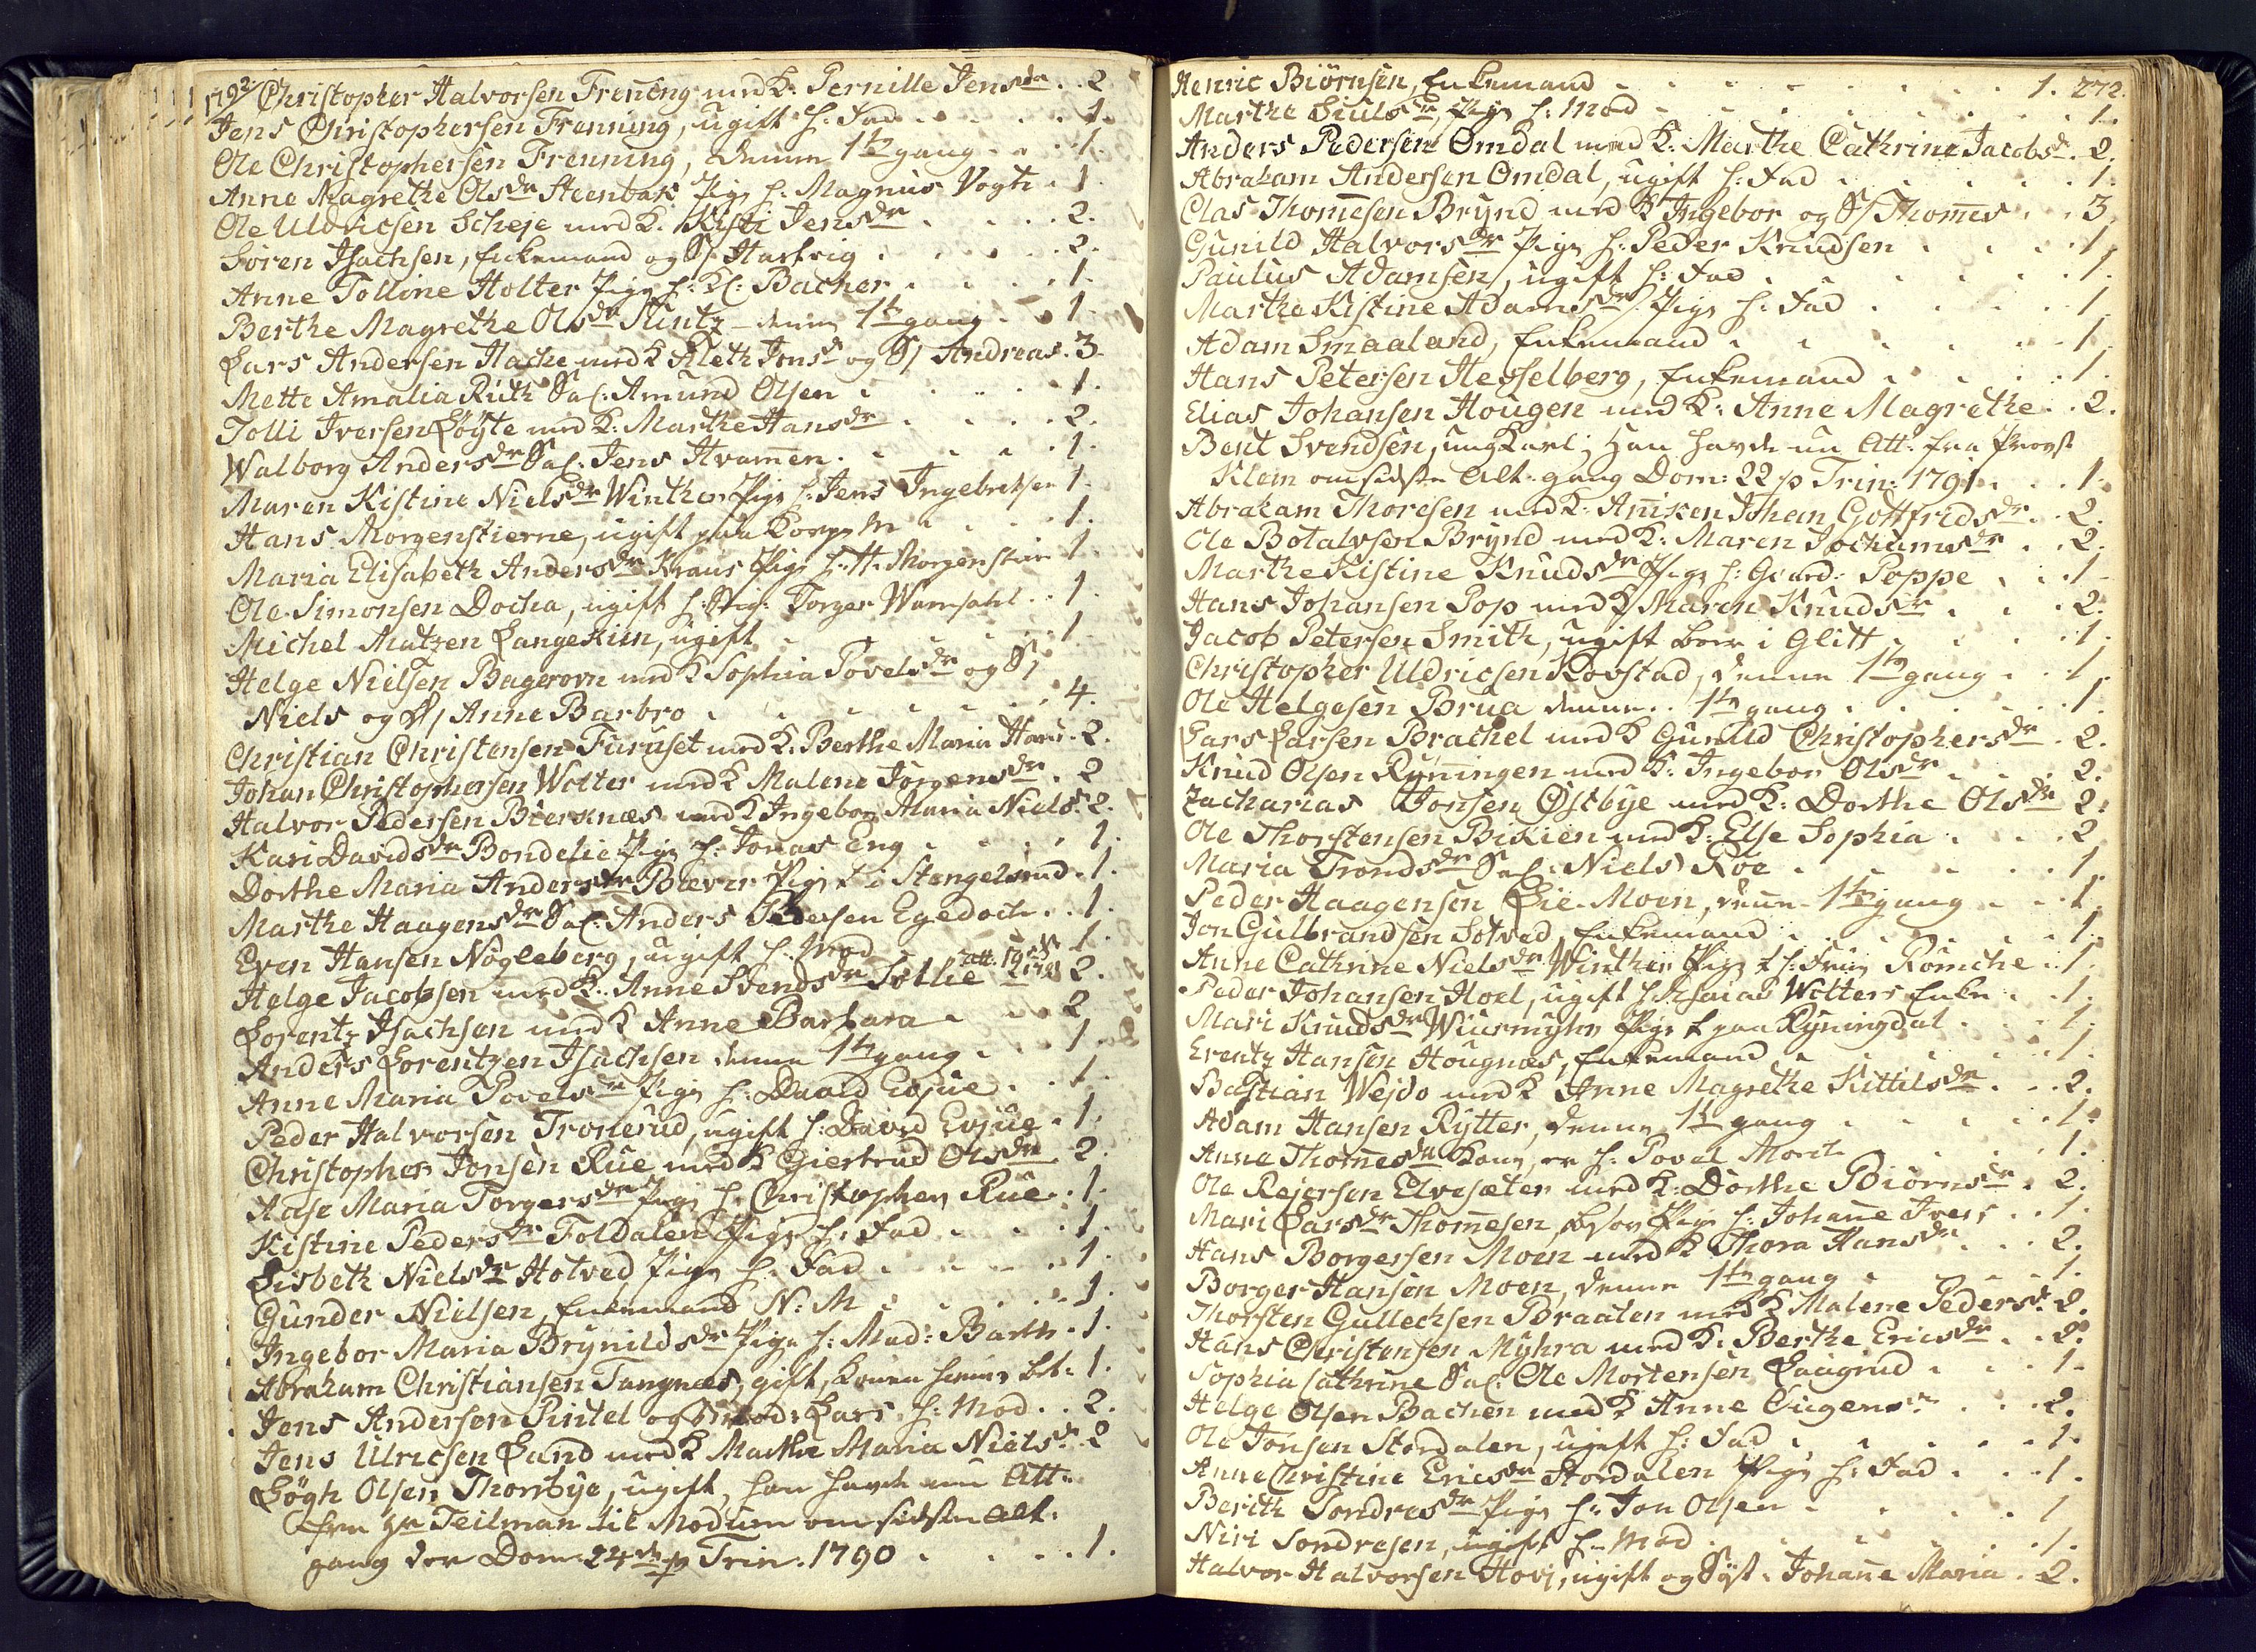 1792. Christopher Halvorsen Frening med K: Pernille Jensdr . . 2
Jens Christophersen Frenning, ugift h: Fad . . . . . 1.
Ole Christophersen Frenning, denne 1te gang . . . 1.
Anne Magrethe Olsdr Steenbak Pige h: Magnus Vogt . 1.
Ole Uldricsen Scheje med K. Kisti Jensdr . . . . 2.
Søren Isachsen, Enkemand og S/ Hartvig . . . . . 2.
Anne Tolline Holter Pige h: Kl: Bacher . . . . . 1.
Berthe Magrethe Olsdr Kuntz denne 1te gang . . 1.
Lars Andersen Hache med K Aleth Jensd og S/ Andreas . 3.
Mette Amalia Ruth Sal: Amund Olsen . . . . . 1.
Tolli Iversen Løyte med K: Marthe Hansdr . . . . 2.
Walborg Andersdr Sal: Jens Hvamen . . . . . 1.
Maren Kistine Nielsdr Winther Pige h: Jens Ingebretsen 1.
Hans Morgenstierne, ugift . . . . . 1.
Maria Elisabeth Andersdr Kraus Pige h: H. Morgenstiern 1.
Ole Simonsen Docka, ugift h: Torger Wamsahl . . 1.
Michel Matzen Langekien, ugift . . . . . . 1.
Helge Nielsen Bagerovn med K Sophia Povelsdr og S/
Niels og D/ Anne Barbro . . . . . . . 4.
Christian Christensen Furuset med K: Berthe Maria Hans . 2.
Johan Christophersen Wolter med K Malene Jørgensdr . 2
Halvor Pedersen Bierknæs med K Ingebor Maria Niels . 2.
Kari Davidsdr Bondelie Pige h: Jonas Eng . . . . 1.
Dorthe Maria Andersdr Bæver Pige t i Stengelsrud . 1.
Marthe Haagensdr Sal: Anders Pedersen Egedoch . . 1.
Even Hansen Nøgleberg, ugift h: Mod . . . . 1.
Helge Jacobsen med K: Anne Svendsdr Tollie 2.
Lorentz Isachsen med K Anne Barbara . . . 2
Anders Lorentzen Isachsen denne 1te gang . . . 1.
Anne Maria Povelsdr Pige h: David Evjue . . 1.
Peder Halvorsen Tronerud, ugift h: David Evjue . 1.
Christopher Jonsen Rue med K Giertrud Olsdr . 2.
Aase Maria Torgersdr Pige h: Christopher Rue . 1.
Kistine Pedersdr Foldalen Pige h: Fad . . . . 1.
Lisbeth Nielsdr Hotved Pige h: Fad . . . . . 1.
Gunder Nielsen, Enkemand N: M . . . . . 1.
Ingebor Maria Brynildsdr Pige h: Mad: Barth . 1.
Abraham Christiansen Tangnæs, gift, Konen 1.
Jens Andersen Pintel og Lars h: Mod . . 2.
Jens Ulricsen Lund med K Marthe Maria Nielsdr . 2
Løgh Olsen Thorsbye, ugift, han havde nu Att:
fra Hr Teilman til Modum om sidste Alt:
gang der Dom: 24de p Trin. 1790 . . . . 1.
272.
Henric Biørnsen, Enkemand . . . . . . . 1.
Marthe Siulsdr, Pige h: Mod . . . . . . . 1.
Anders Pedersen Omdal med K: Marthe Cathrine Jacobsd . 2.
Abraham Andersen Omdal, ugift h: Fad . . . . . 1.
Clas Thomesen Brynd med K Ingebor og S/ Thomes . . 3.
Gunild Halvorsdr Pige h: Peder Knudsen . . . . 1.
Paulus Adamsen, ugift h: Fad . . . . . . 1.
Marthe Kistine Adamsdr Pige h: Fad . . . . . 1.
Adam Smaaland, Enkemand . . . . . . 1.
Hans Petersen Hesselberg, Enkemand . . . . 1.
Elias Johansen Hougen med K: Anne Magrethe . . 2.
Bent Svendsen, ungKarl; han havde nu Att: fra Provst
Klem om sidste Alt: gang Dom: 22 p Trin: 1791 . . . 1.
Abraham Thoresen med K: Aniken Johan Gottfridsdr . . 2.
Ole Botalvsen Brynd med K: Maren Jochumsdr . . 2.
Marthe Kistine Knudsdr Pige h: Poppe . . . 1.
Hans Johansen Pop med K Maren Knudsdr . . . 2.
Jacob Petersen Smith, ugift boer i Glitt . . . . 1.
Christopher Uldricsen Kovstad, denne 1te gang . . 1.
Ole Helgesen Brua denne 1te gang . . . . . 1.
Lars Larsen Brachel med K Gunild Christophersdr . 2.
Knud Olsen Ryningen med K: Ingebor Olsdr . . . 2.
Zacharias Jonsen Østbye med K: Dorthe Olsdr 2.
Ole Thorstensen Bikien med K: Else Sophia . . . 2
Maria Trondsdr Sal: Niels Roe . . . . . 1.
Peder Haagensen Lie-Moen, denne 1te gang . . . 1.
Jon Gulbrandsen Sotved, Enkemand . . . . . 1.
Anne Cathrine Nielsdr Winther Pige Romche . 1.
Peder Johansen Hoel, ugift h: Esaias Wolters Enke . . 1.
Mari Knudsdr Pige t paa Ryningdal . . . . 1.
Erentz Hansen Hougnæs, Enkemand . . . . . 1.
Bastian Wejdo med K Anne Magrethe Kittilsdr . . . 2.
Adam Hansen Rytter, denne 1te gang . . . . . 1.
Anne Thomesdr Kone, er h: Povel . . . . . 1.
Ole Rejersen Elvesæter med K: Dorthe Biørnsdr . 2.
Mari Larsdr Thomesen, Pige h: Johane Ivers . . 1.
Hans Borgersen Moen med K Thora Hansdr . . . 2.
Borger Hansen Moen, denne 1te gang . . . . . 1.
Thorsten Gullechsen Braaten med K Malene Pedersd . 2.
Hans Christensen Myhra med K: Berthe Ericsdr . . 2.
Sophia Cathrine Sal: Ole Mortensen Laugrud . . . 1.
Helge Olsen Bachen med K Anne Eugensdr . . . 2.
Ole Jonsen Stordalen, ugift h: Fad . . . . . 1.
Anne Christine Ericsdr Stordalen Pige h: Fad . . . 1.
Berith Sondresdr Pige h: Jon Olsen . . . . . 1
Niri Sondresen, ugift h: Mod . . . . . . 1.
Halvor Halvorsen Hovj, ugift og Syst: Johane Maria . 2.